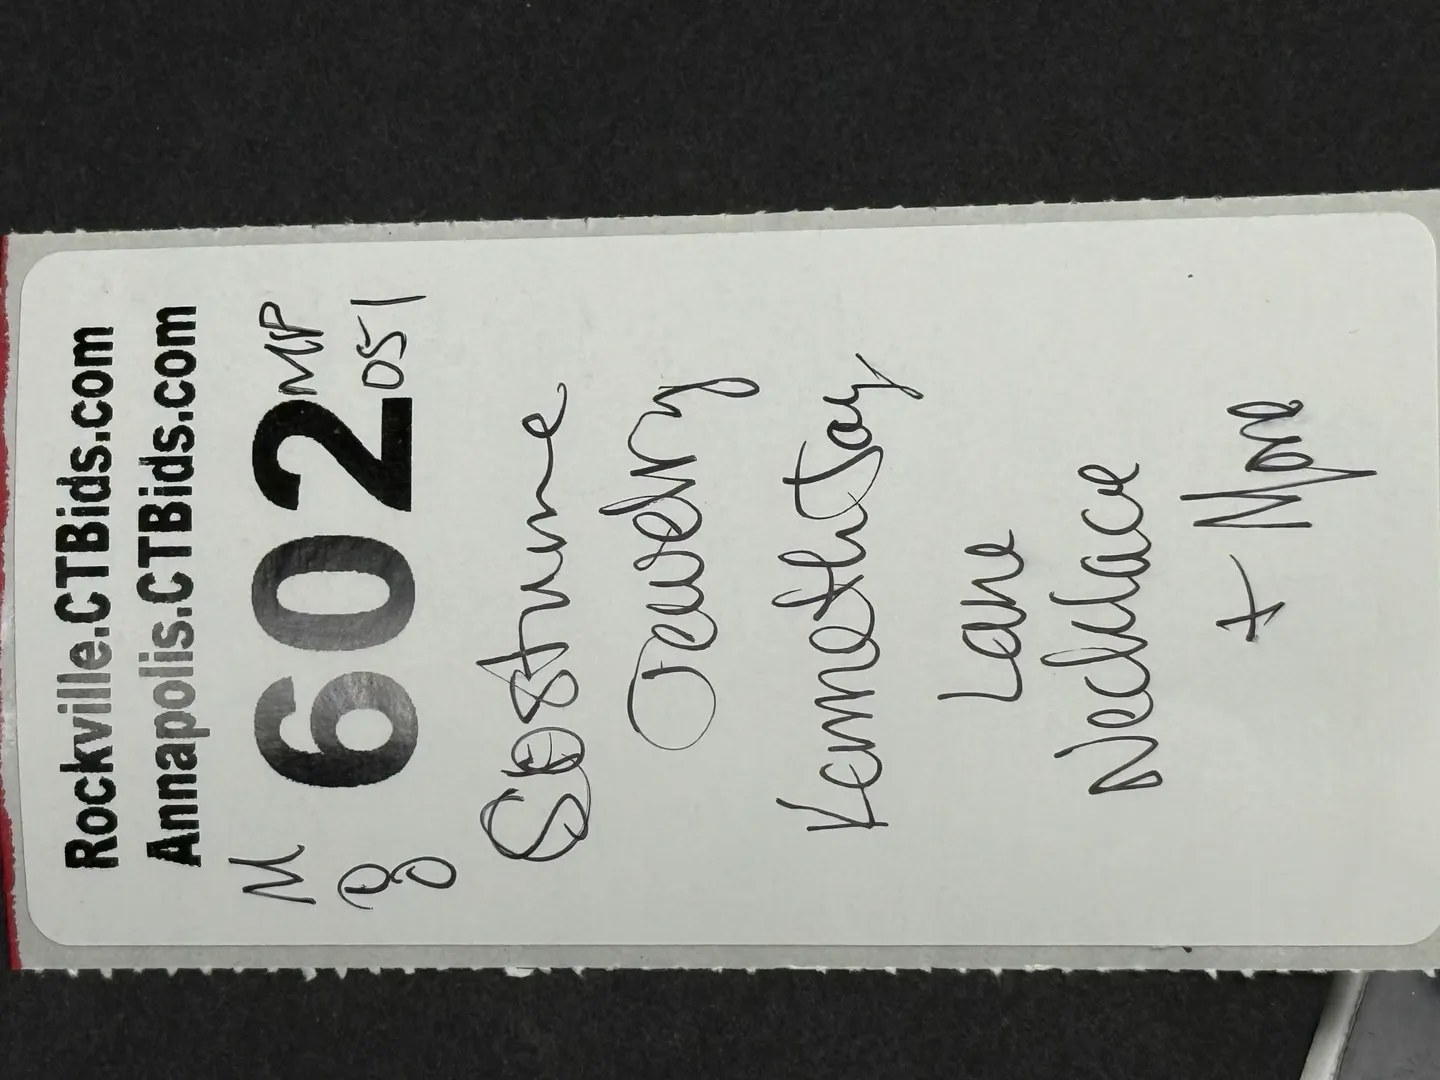 Rockville.CTBids.com
Annapolis.CTBids.com
M 602 MP
051
Costume
Jewelry
Kenneth Jay
Lane
Necklace
+ More